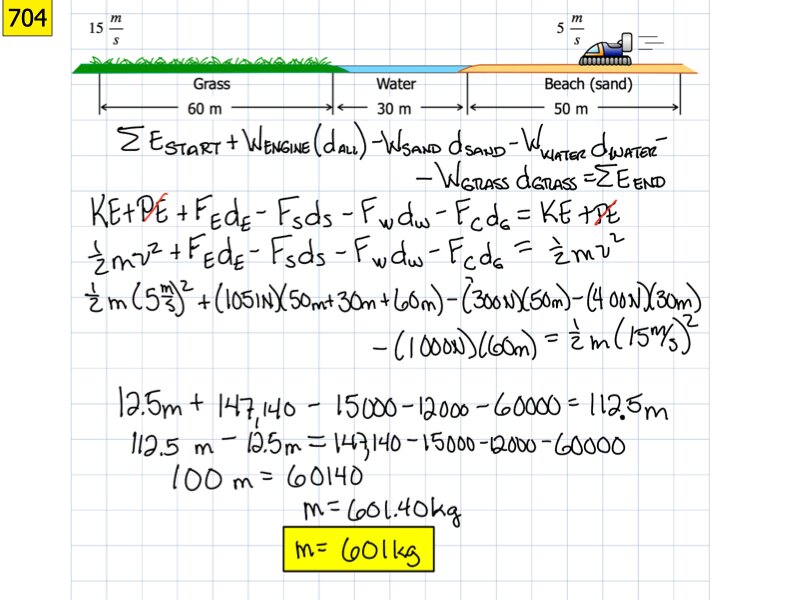 704
15 m/s
5 m/s
Grass
Water
Beach (sand)
60 m
30 m
50 m
ΣE START + W ENGINE (d ALL) - W SAND d SAND - W WATER d WATER -
- W GRASS d GRASS = ΣE END
KE + PE + F_E d_E - F_S d_S - F_W d_W - F_C d_G = KE + PE
½mv² + F_E d_E - F_S d_S - F_W d_W - F_C d_G = ½mv²
½m(5 m/s)² + (1051N)(50m+30m+60m) - (300N)(50m) - (400N)(30m)
- (1000N)(60m) = ½m(15 m/s)²
12.5m + 147,140 - 15000 - 12000 - 60000 = 112.5m
112.5 m - 12.5m = 147,140 - 15000 - 12000 - 60000
100 m = 60140
m = 601.40kg
m = 601kg